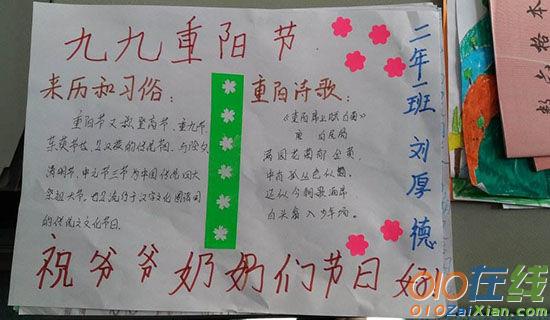 九九重阳节
来历和习俗：
重阳节又称登高节、重九节、
茱萸节也是汉族的传统节日，与除夕
清明节、中元节三节为中国传统四大
祭祖大节。也是流行于汉字文化圈诸国
的传统文化节日。
重阳诗歌：
唐
满园花菊郁金黄，
中有孤丛色似霜。
还似今朝歌酒席
白头翁入少年场。
二年一班 刘厚德
祝爷爷奶奶们节日好
数学格本
010在线
010ZaiXian.com